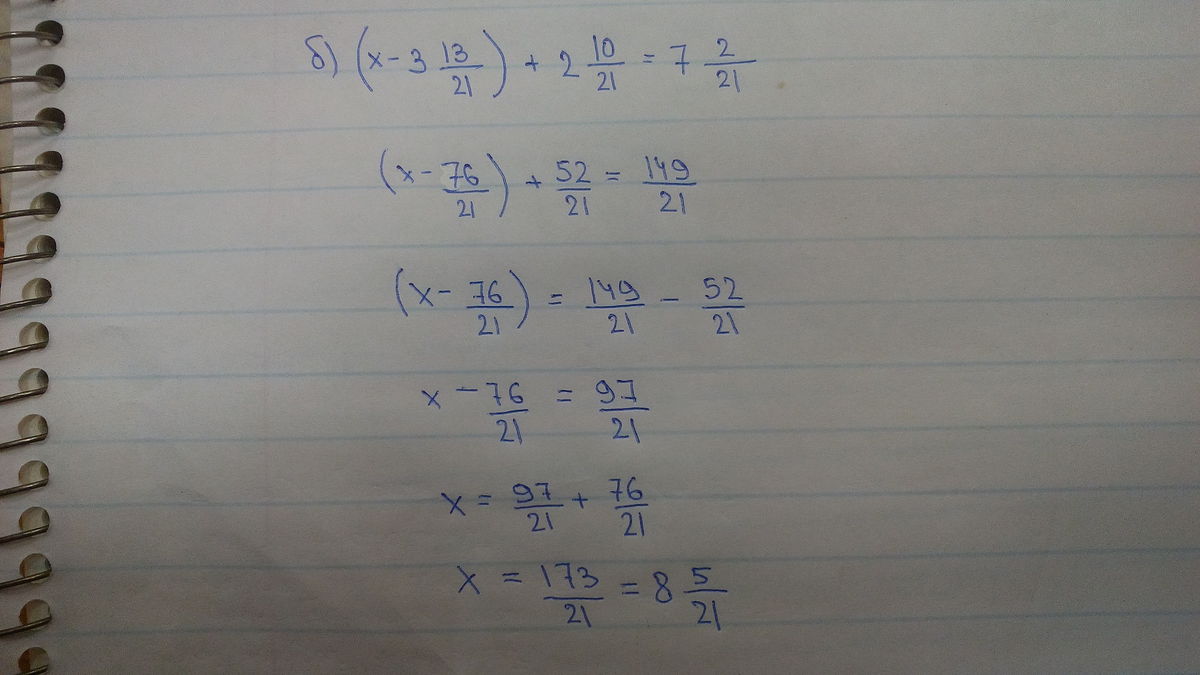 б) (x - 3 13/21) + 2 10/21 = 7 2/21
(x - 76/21) + 52/21 = 149/21
(x - 76/21) = 149/21 - 52/21
x - 76/21 = 97/21
x = 97/21 + 76/21
x = 173/21 = 8 5/21